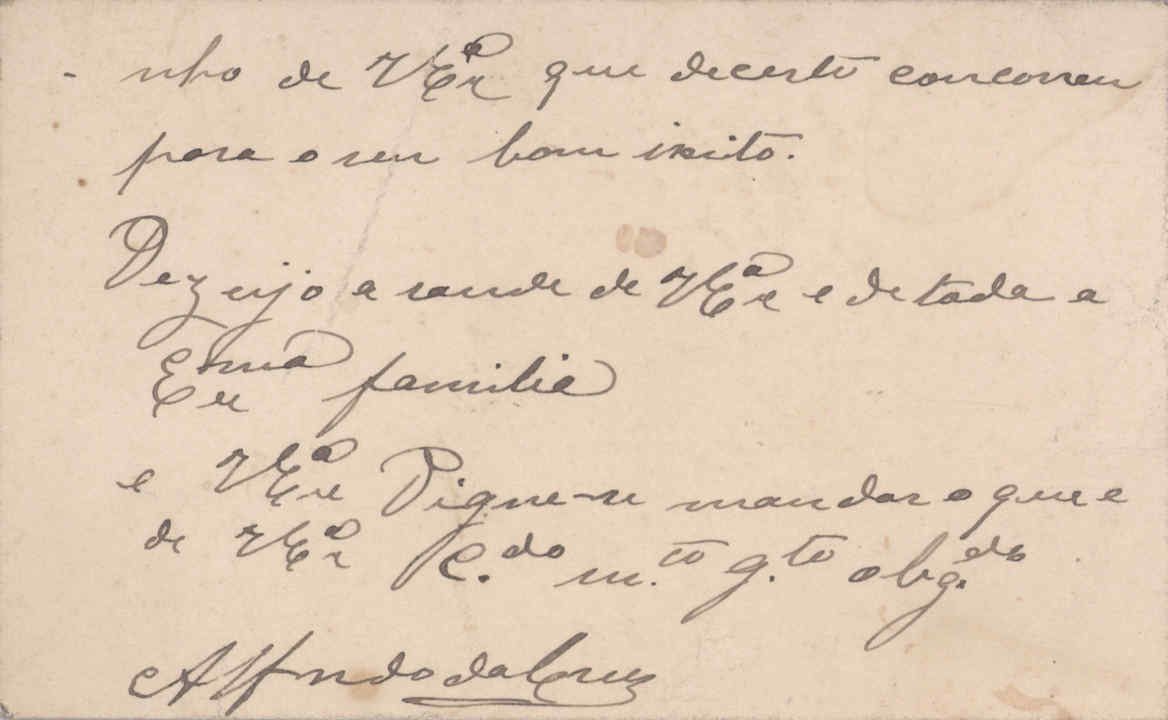 nho de V Ex.ª que decerto concorreu
para o seu bom ixito.
Dezeijo a saude de V Ex.ª e de toda a
Ex.ma familia
e V Ex.ª Digne-se mandar o que e
de V Ex.ª C.do m.to g.to obg.do
Alfredo da Cruz